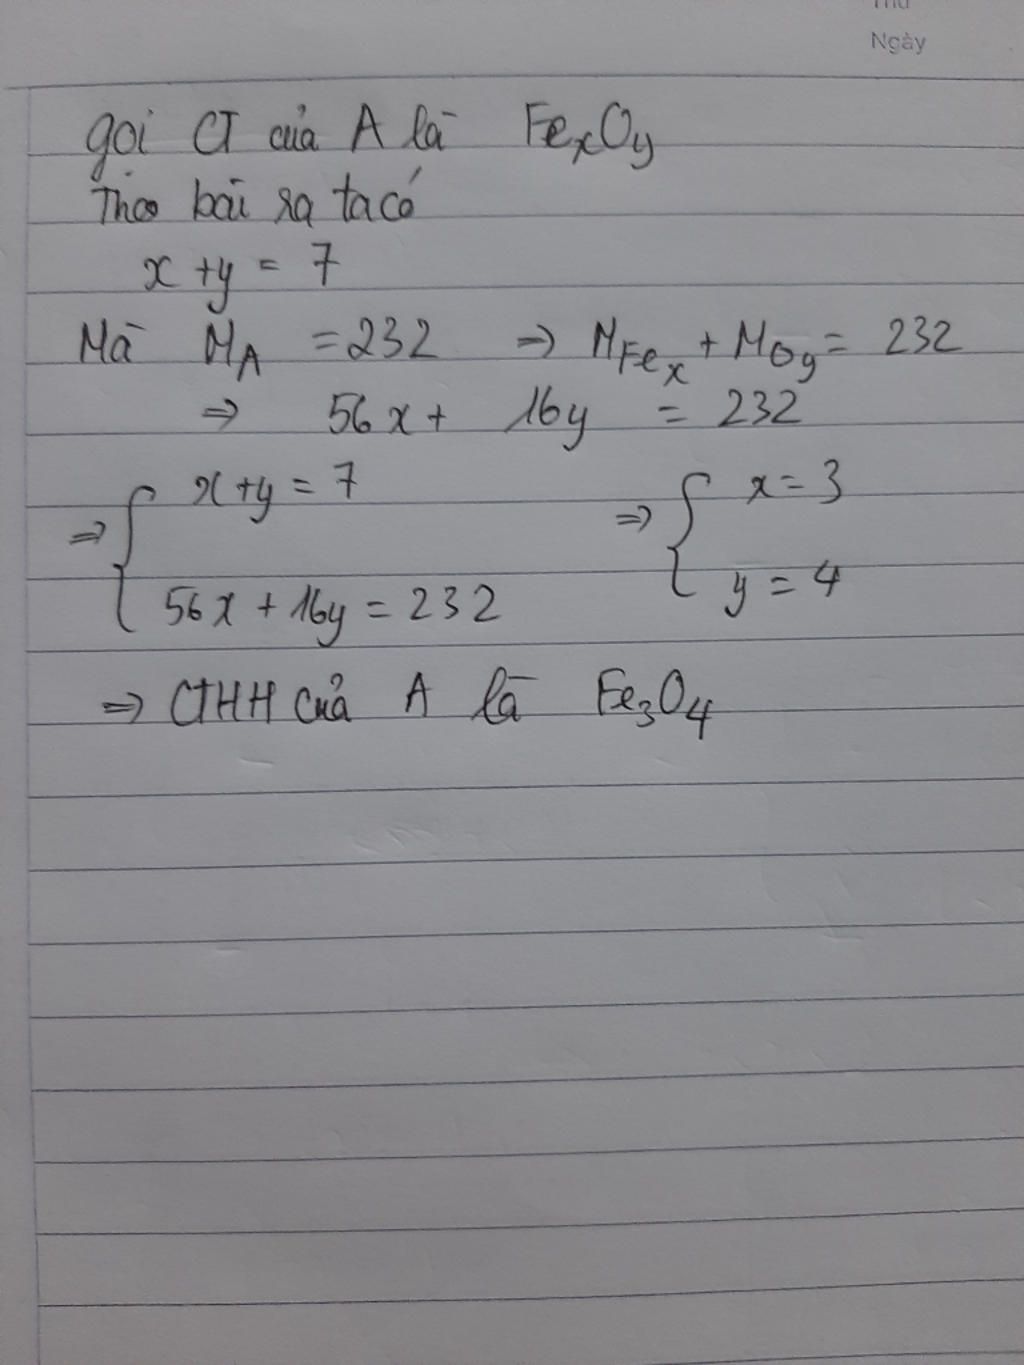 Ngày
gọi CT của A là FexOy
Theo bài ra ta có
x + y = 7
Mà MA = 232 => MFex + MOy = 232
=> 56x + 16y = 232
=> { x + y = 7 => { x = 3
56x + 16y = 232 y = 4
=> CTHH của A là Fe3O4